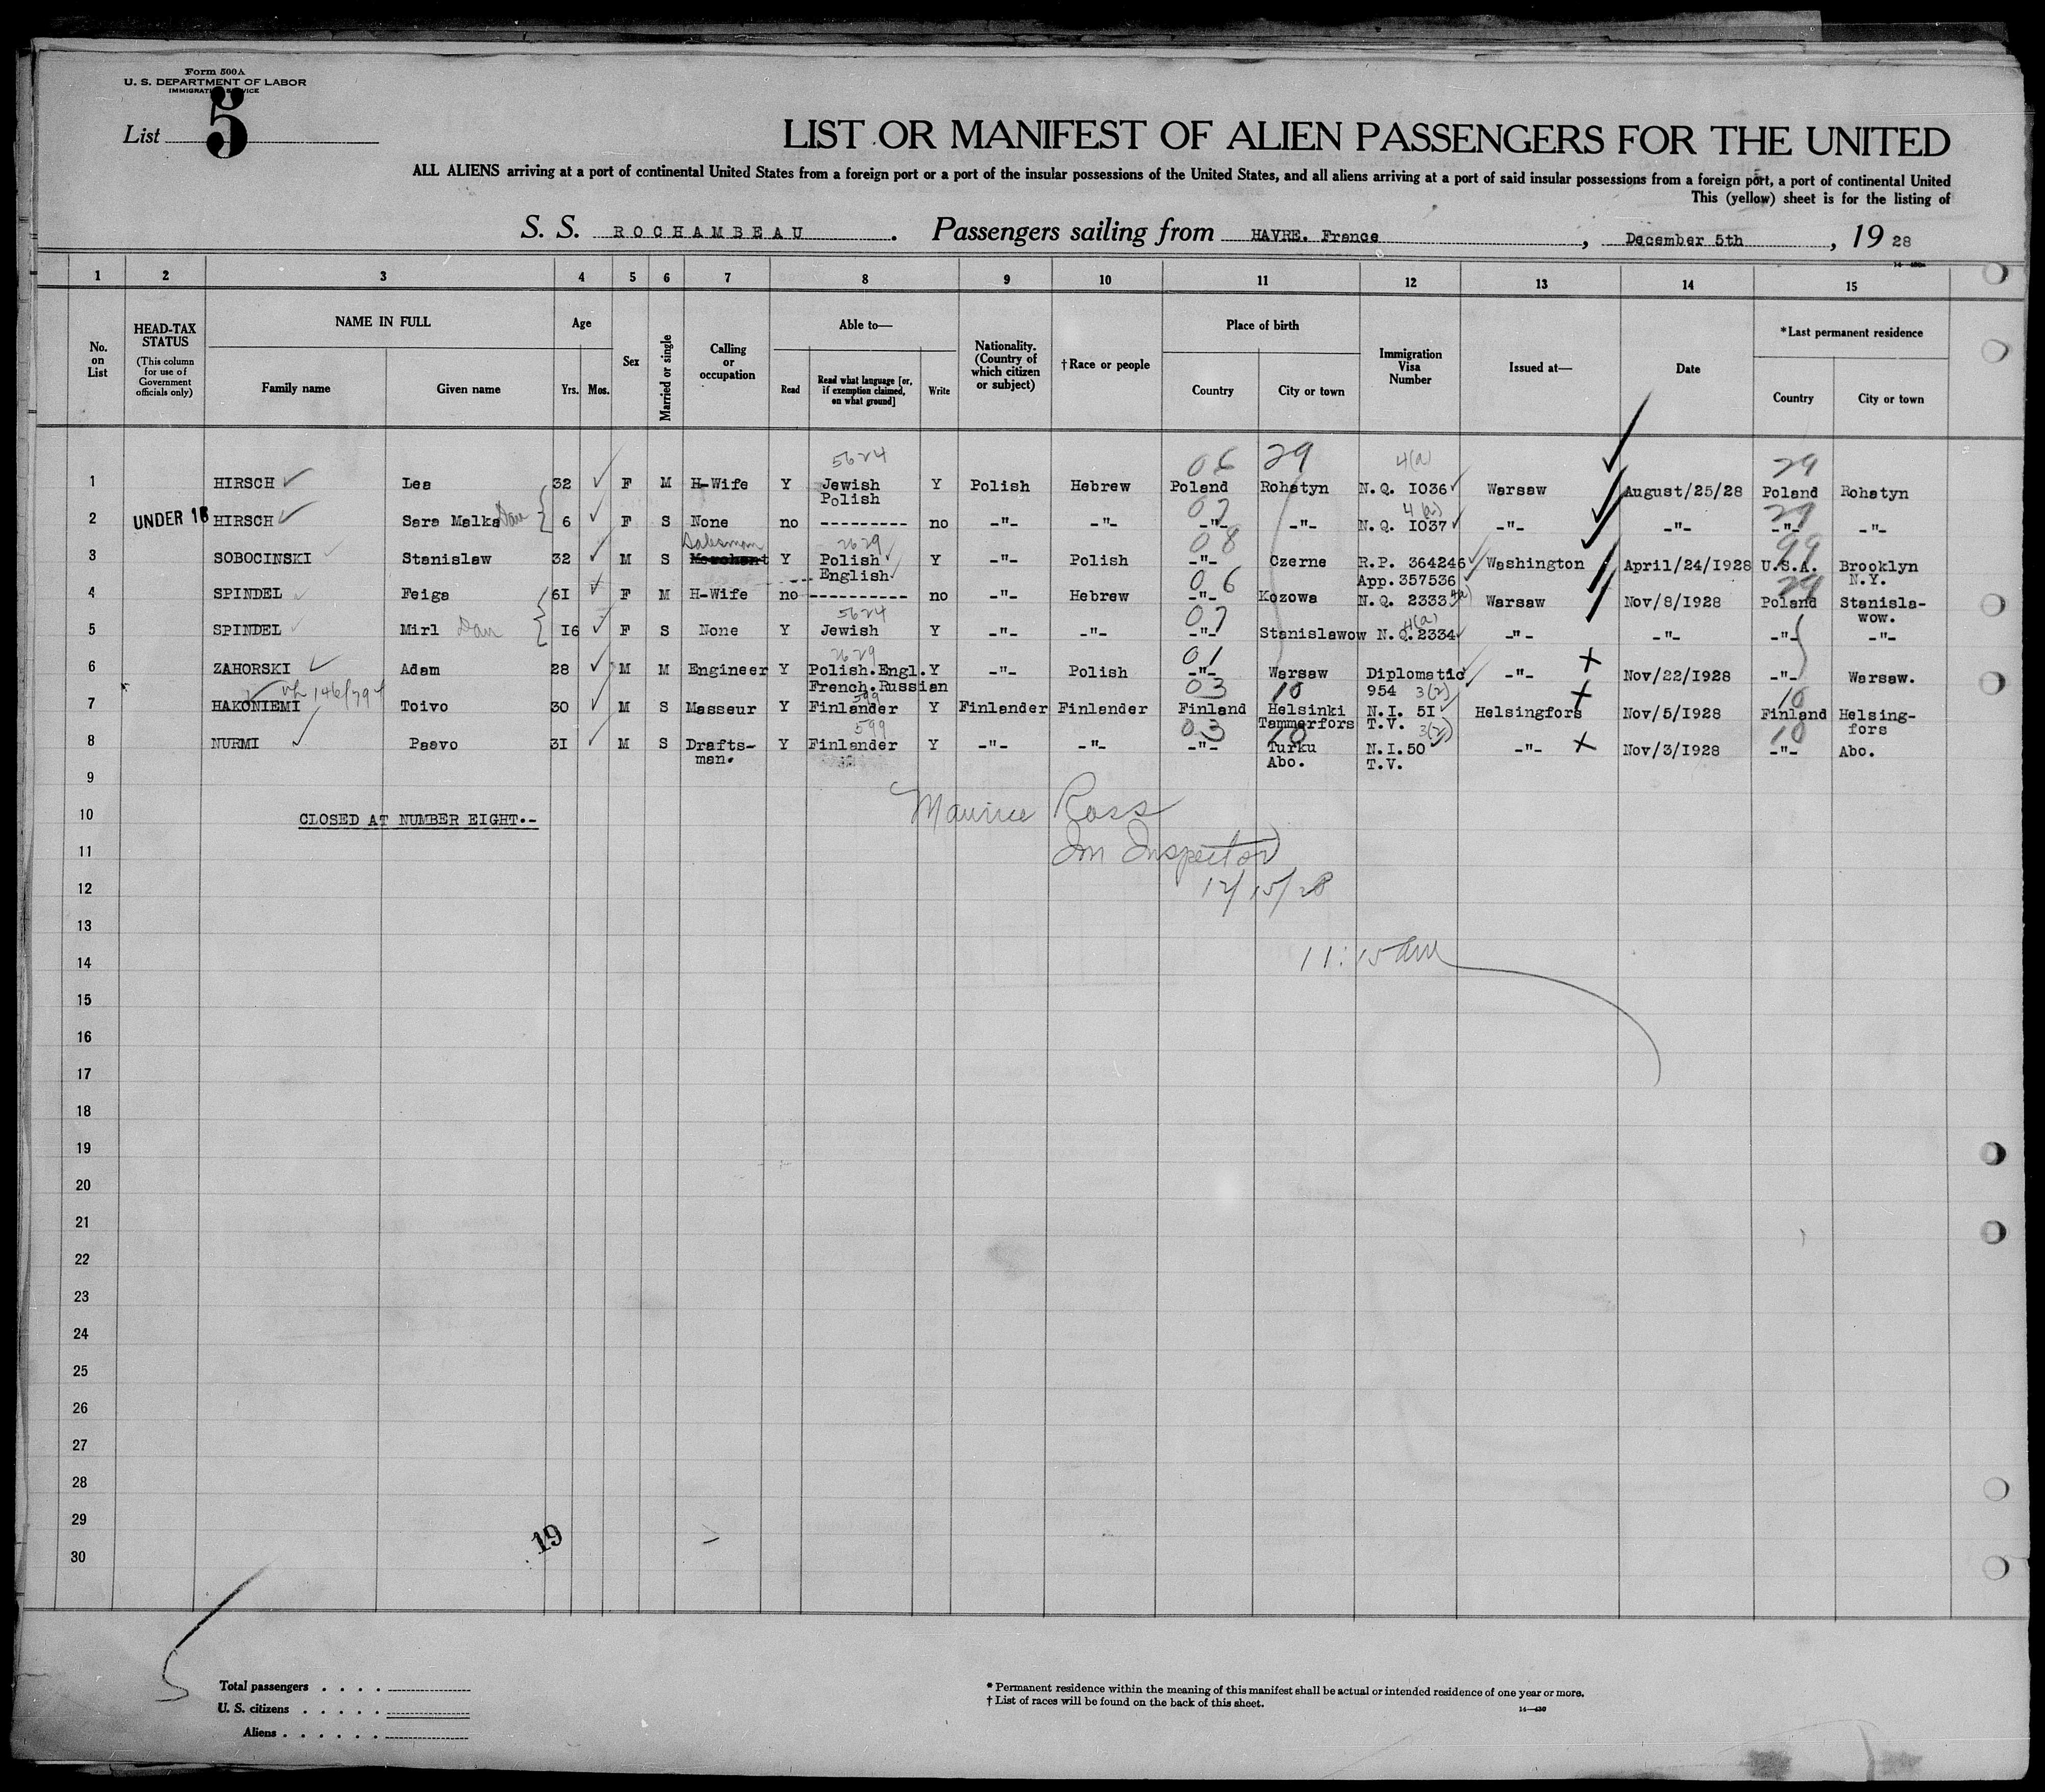 Form 500A
U. S. DEPARTMENT OF LABOR
IMMIGRATION SERVICE
List 5
LIST OR MANIFEST OF ALIEN PASSENGERS FOR THE UNITED
ALL ALIENS arriving at a port of continental United States from a foreign port or a port of the insular possessions of the United States, and all aliens arriving at a port of said insular possessions from a foreign port, a port of continental United
This (yellow) sheet is for the listing of
S. S. ROCHAMBEAU. Passengers sailing from HAVRE. France, December 5th, 1928
1 2 3 4 5 6 7 8 9 10 11 12 13 14 15
No. on List
HEAD-TAX STATUS (This column for use of Government officials only)
NAME IN FULL
Family name Given name
Age
Yrs. Mos.
Sex
Married or single
Calling or occupation
Able to—
Read
Read what language [or, if exemption claimed, on what ground]
Write
Nationality. (Country of which citizen or subject)
†Race or people
Place of birth
Country City or town
Immigration Visa Number
Issued at—
Date
*Last permanent residence
Country City or town
5624 06 29 4(a) 29
1 HIRSCH Lea 32 F M H-Wife Y Jewish Y Polish Hebrew Poland Rohatyn N.Q. 1036 Warsaw August/25/28 Poland Rohatyn
Polish
07 4(a) 29
2 UNDER 16 HIRSCH Sara Malka Dau 6 F S None no --------- no -"- -"- -"- -"- N.Q. 1037 -"- -"- -"- -"-
Salesman 2629 08 99
3 SOBOCINSKI Stanislaw 32 M S Merchant Y Polish Y -"- Polish -"- Czerne R.P. 364246 Washington April/24/1928 U.S.A. Brooklyn
English App. 357536 N.Y.
06 29
4 SPINDEL Feiga 61 F M H-Wife no ---------- no -"- Hebrew -"- Kozowa N.Q. 2333 Warsaw Nov/8/1928 Poland Stanisla-
wow.
5624 07 4(a)
5 SPINDEL Mirl Dau 16 F S None Y Jewish Y -"- -"- -"- Stanislawow N.Q. 2334 -"- -"- -"- -"-
2629 01
6 ZAHORSKI Adam 28 M M Engineer Y Polish.Engl. Y -"- Polish -"- Warsaw Diplomatic -"- Nov/22/1928 -"- Warsaw.
French.Russian 954
599 03 10 3(2) 10
7 HAKONIEMI Toivo 30 M S Masseur Y Finlander Y Finlander Finlander Finland Helsinki N.I. 51 Helsingfors Nov/5/1928 Finland Helsing-
Tammerfors T.V. fors
599 03 10 3(2) 10
8 NURMI Paavo 31 M S Drafts- Y Finlander Y -"- -"- -"- Turku N.I.50 -"- Nov/3/1928 -"- Abo.
man. Abo. T.V.
9
10 CLOSED AT NUMBER EIGHT.-
Maurice Ross
11
Im Inspector
12
12/15/28
13
14
11:15 am
15
16
17
18
19
20
21
22
23
24
25
26
27
28
29
30
19
5
Total passengers . . . .
U. S. citizens . . . . .
Aliens . . . . . .
* Permanent residence within the meaning of this manifest shall be actual or intended residence of one year or more.
† List of races will be found on the back of this sheet.